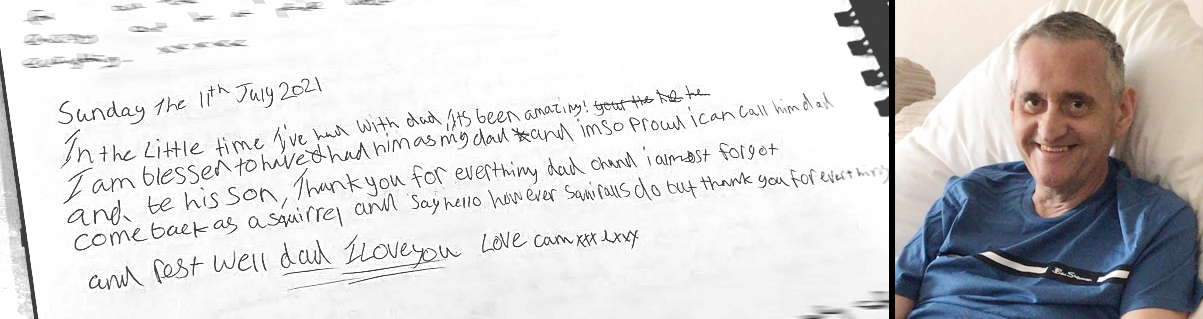 Sunday the 11th July 2021
In the Little time I've had with dad its been amazing! your the he he
I am blessed to haved had him as my dad and im so Proud i can call him dad
and be his son, Thank you for everthing dad ohand i almost forgot
come back as a squirrel and say hello however squiralls do but thank you for everthing
and Rest well dad I Love you Love cam xxx xxx
Ben Sherman